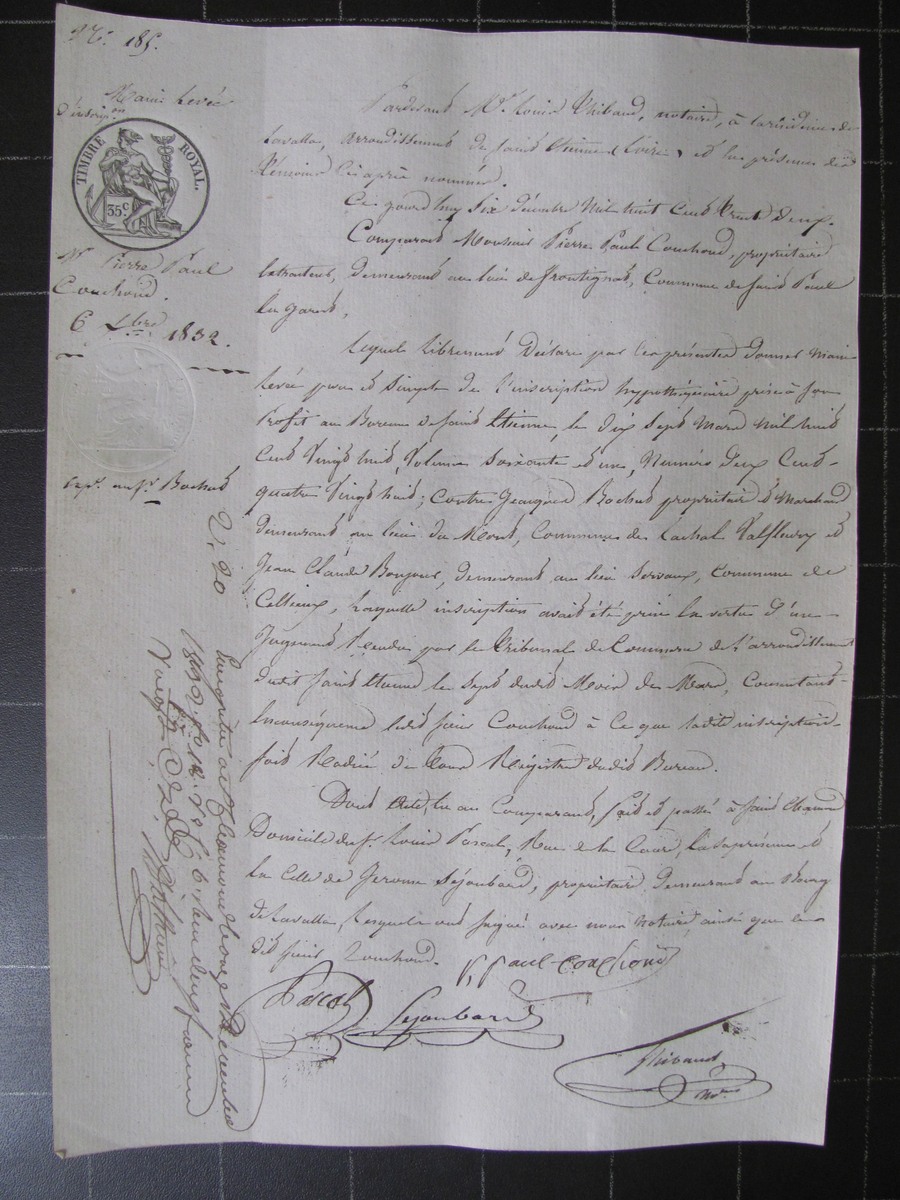 N.º 185.
Main Levée
d'inscrip.on
TIMBRE ROYAL.
35 c
Mr Pierre Paul
Couchoud.
6 Xbre 1832.
Exp.n au Sr. Bochud
2, 20
Pardevant Mr. Louis Thibaud, notaire, à la résidence de
Lavalla, arrondissement de Saint Etienne (Loire) et en présence des
Témoins ci après nommés.
Ce jourd'huy six décembre Mil huit Cent trente deux.
Comparant Monsieur Pierre Paul Couchoud, propriétaire
demeurant au lieu de Frontignat, Commune de Saint Paul
En Jarest,
Lequel librement déclare par ces présentes donner Main
Levée pure et Simple de l'inscription hypothécaire prise à Son
Profit au Bureau de Saint Etienne, le dix Sept Mars Mil huit
Cent Vingt huit, Volume Soixante et un, Numéro Deux Cent
quatre Vingt huit; Contre Jacques Bochud propriétaire et Marchand
demeurant au lieu du Mont, Commune de Lachal Valfleury et
Jean Claude Bonjour, demeurant au lieu Servaux, Commune de
Cellieux, Laquelle inscription avait été prise En vertu d'un
Jugement Rendu par le Tribunal de Commerce de l'arrondissement
dudit Saint Etienne le Sept dudit Mois de Mars, Consentant
En conséquence ledit Sieur Couchoud à Ce que ladite inscription
Soit Radiée de tous Registres dudit Bureau.
Dont Acte, lu au Comparant, fait et passé à Saint Chamond
Domicile du Sr. Louis Pascal, Rue de la Cour, En Sa présence et
En Celle de Jerome Séjoubard, propriétaire, demeurant au Bourg
de Lavalla, Lesquels ont Signé avec nous notaire, ainsi que le
dit Sieur Couchoud.
P. paul Couchoud
Pascal
Sejoubard
Thibaud
not.
Enregistré à St Chamond le onze Décembre
1832 fo. 18